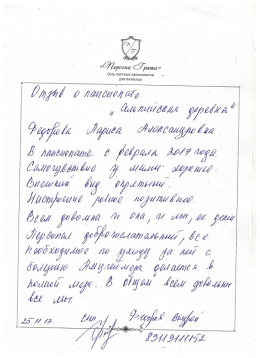 «Перспектива»
Сеть частных пансионатов
для пожилых
Отзыв о пансионате
"Альпийская деревня"
Федорова Лариса Александровна
В пансионате с февраля 2017 года.
Самочувствие у мамы хорошее.
Внешний вид опрятный.
Настроение ровное позитивное.
Всем довольна и она, и мы, ее дети
Персонал доброжелательный, все
необходимое по уходу за ней с
болезнью Альцгеймера делается в
полной мере. В общем всем довольны
все мы.
25.11.17 сын Федоров Андрей
89119111152